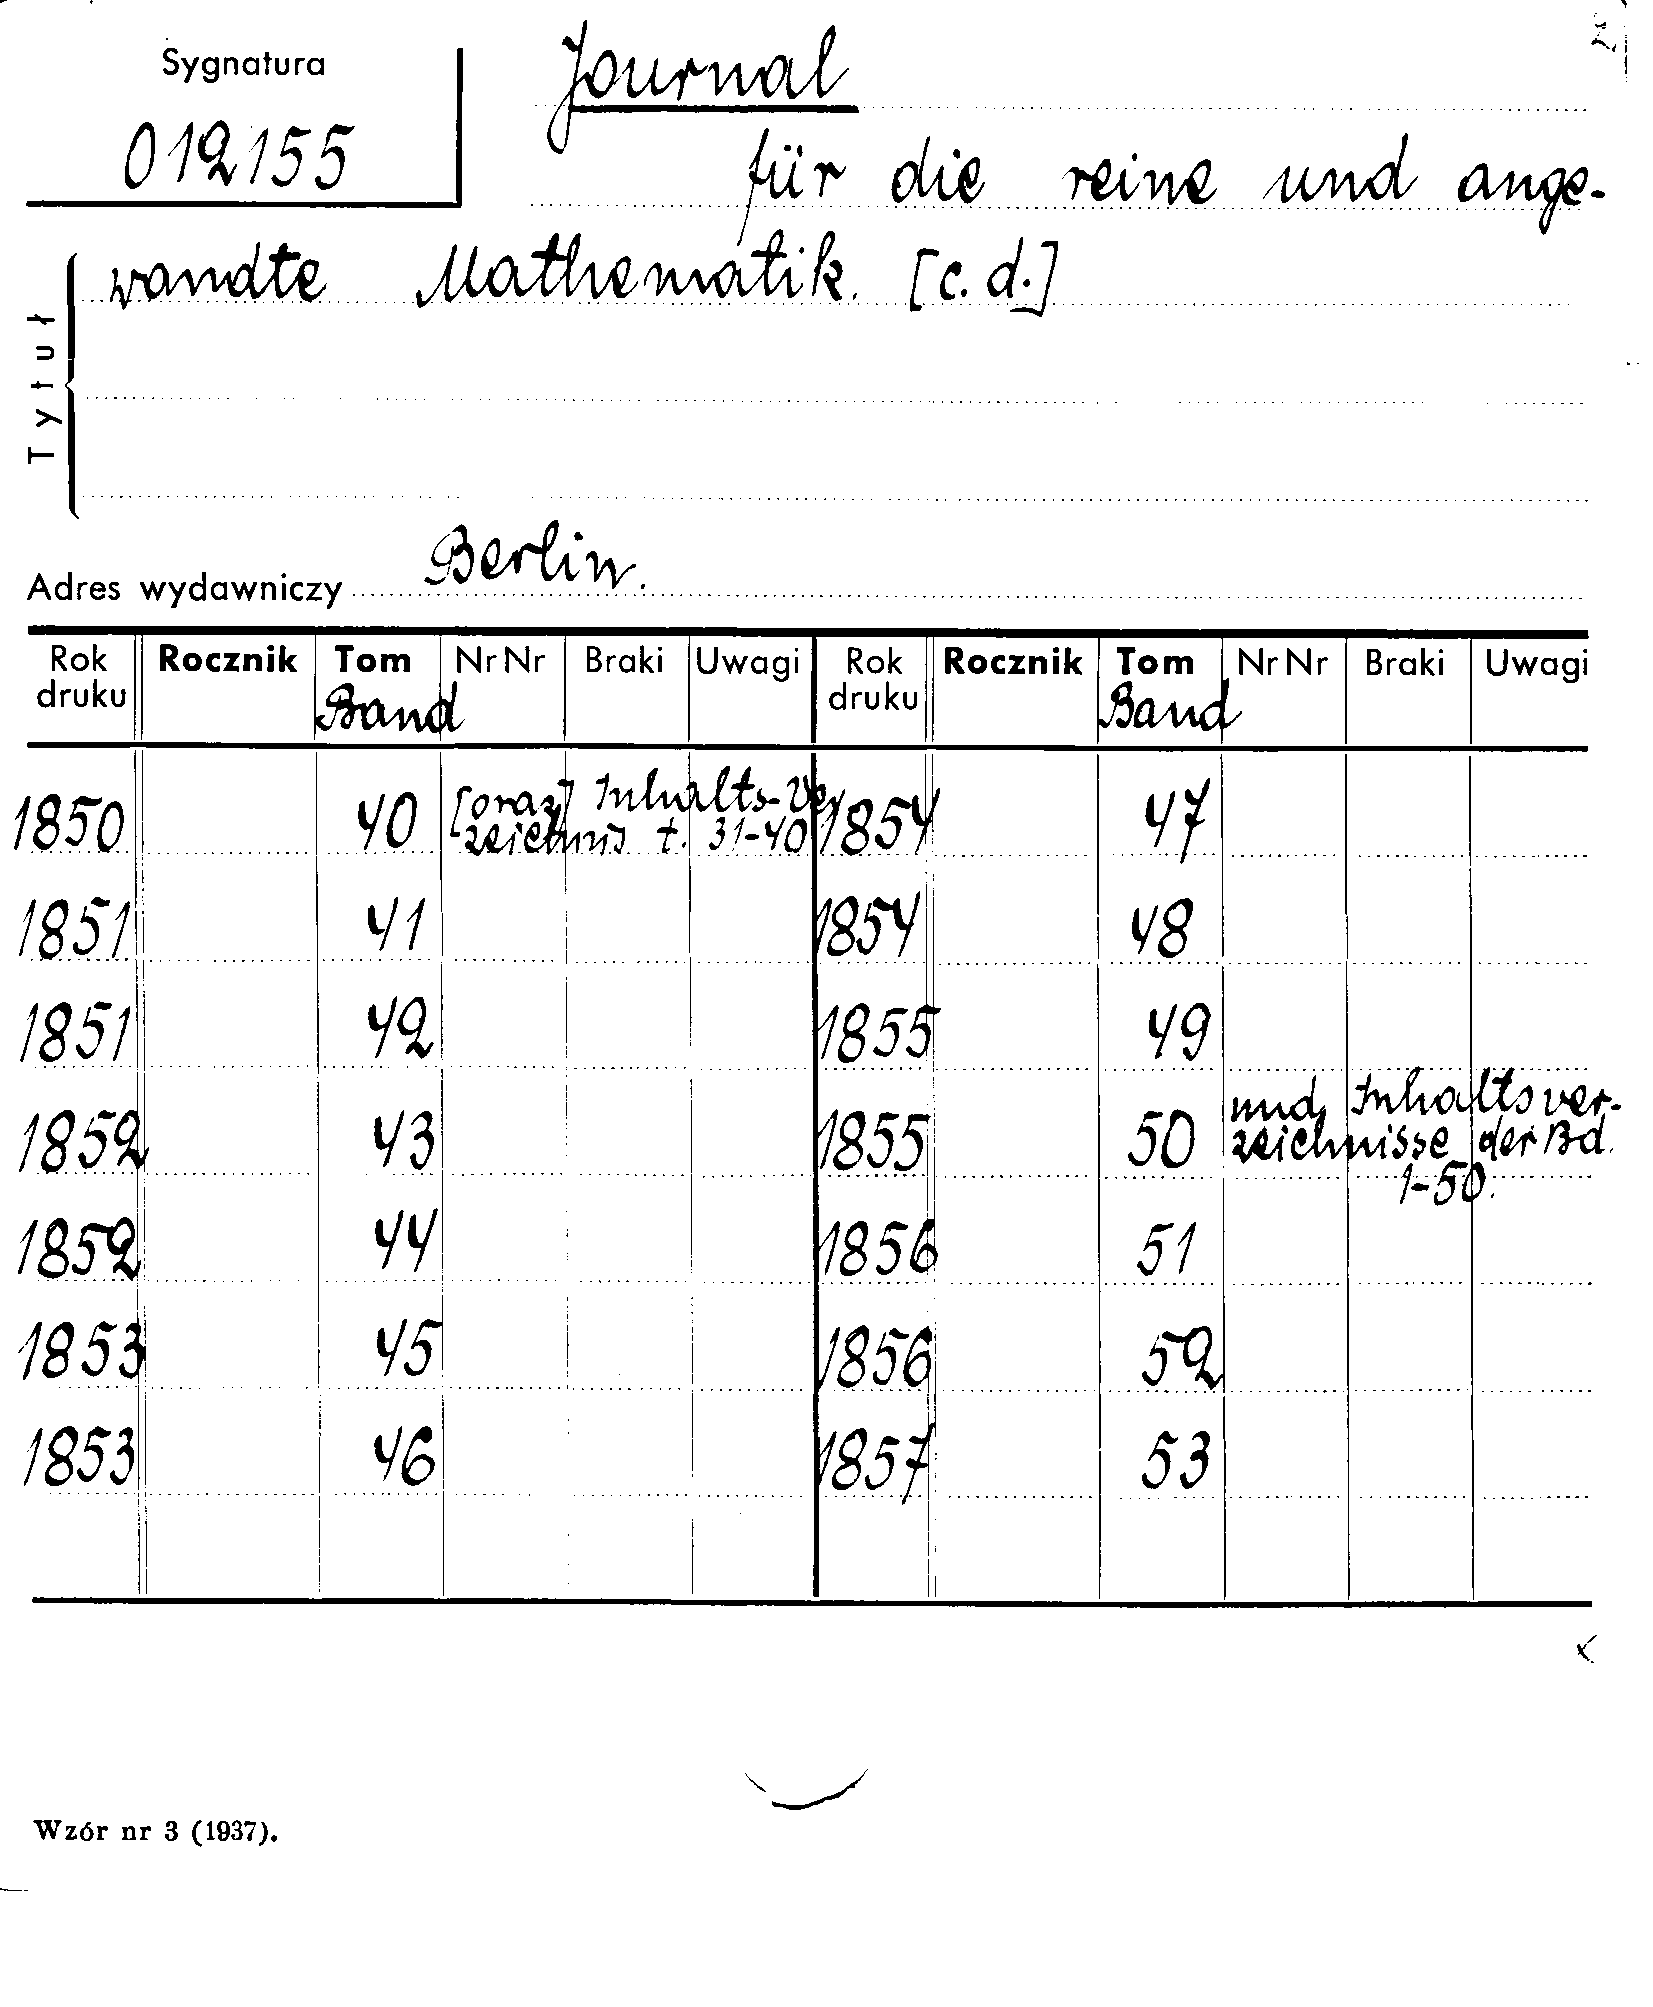 Sygnatura
012155
Journal
für die reine und ange-
wandte Mathematik. [c.d.]
Tytuł
Adres wydawniczy Berlin.
Rok druku Rocznik Tom Nr Nr Braki Uwagi Rok druku Rocznik Tom Nr Nr Braki Uwagi
Band Band
1850 40 [oraz] Inhalts-Ver 1854 47
zeichnis t. 31-40
1851 41 1854 48
1851 42 1855 49
1852 43 1855 50 und Inhaltsver-
zeichnisse der Bd.
1-50.
1852 44 1856 51
1853 45 1856 52
1853 46 1857 53
Wzór nr 3 (1937).